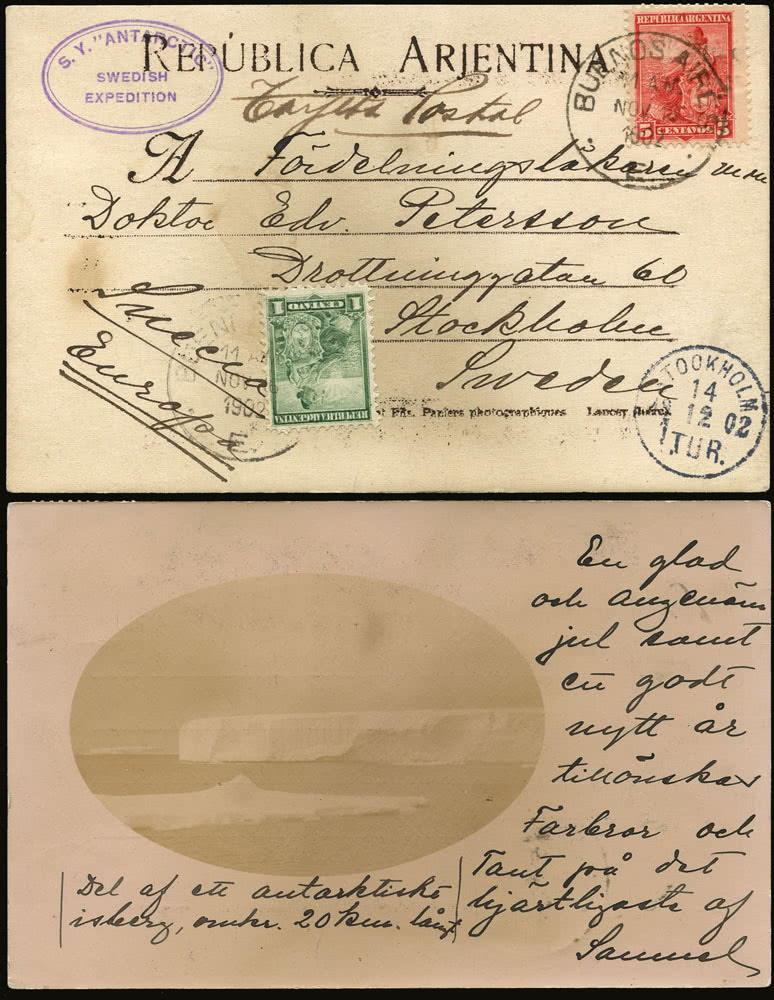 S. Y. "ANTARCTIC"
SWEDISH
EXPEDITION
REPÚBLICA ARJENTINA
Tarjeta Postal
REPUBLICA ARGENTINA
5 CENTAVOS 5
BUENOS AIRES
11 AM
NOV
1902
A Fördelningsläkaren m m
Doktor Edv. Petersson
Drottninggatan 60
Stockholm
Sweden
Suecia
Europa
1 CENTAVO 1
REPUBLICA ARGENTINA
11 A
NOV
1902
et Fils. Papiers photographiques Lancey (Isère)
STOCKHOLM
14
12 02
1. TUR.
En glad
och angenäm
jul samt
ett godt
nytt år
tillönskar
Farbror och
Tant på det
hjärtligaste af
Samuel
Del af ett antarktiskt
isberg, omkr. 20 km. långt